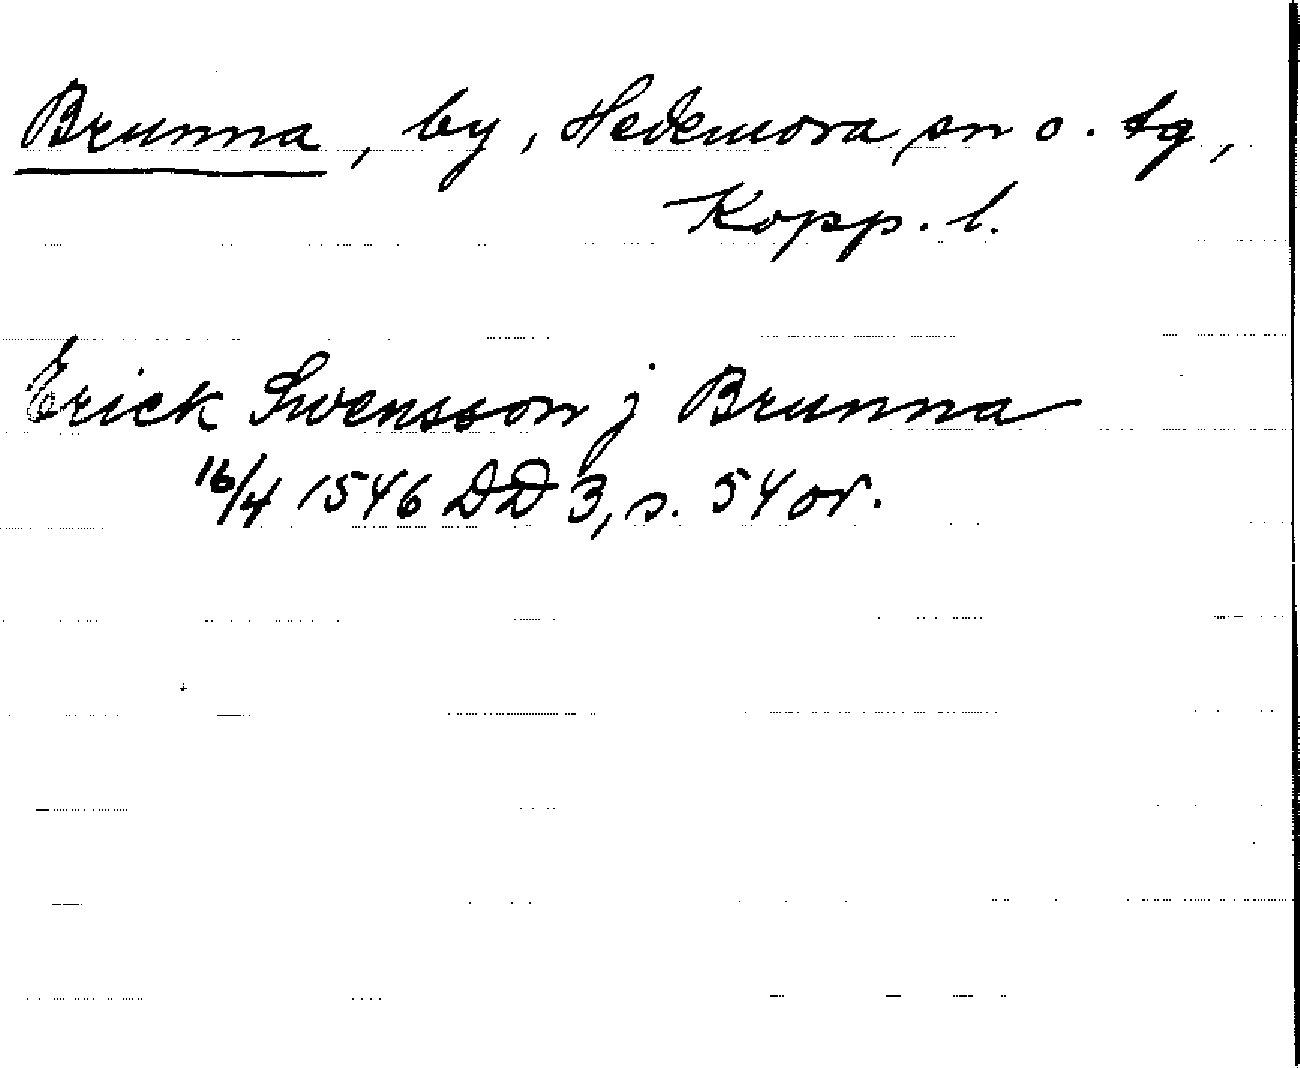 Brunna, by, Hedemora sn o. tg,
Kopp. l.
Erick Swensson j Brunna
16/4 1546 DD 3, s. 54 or.